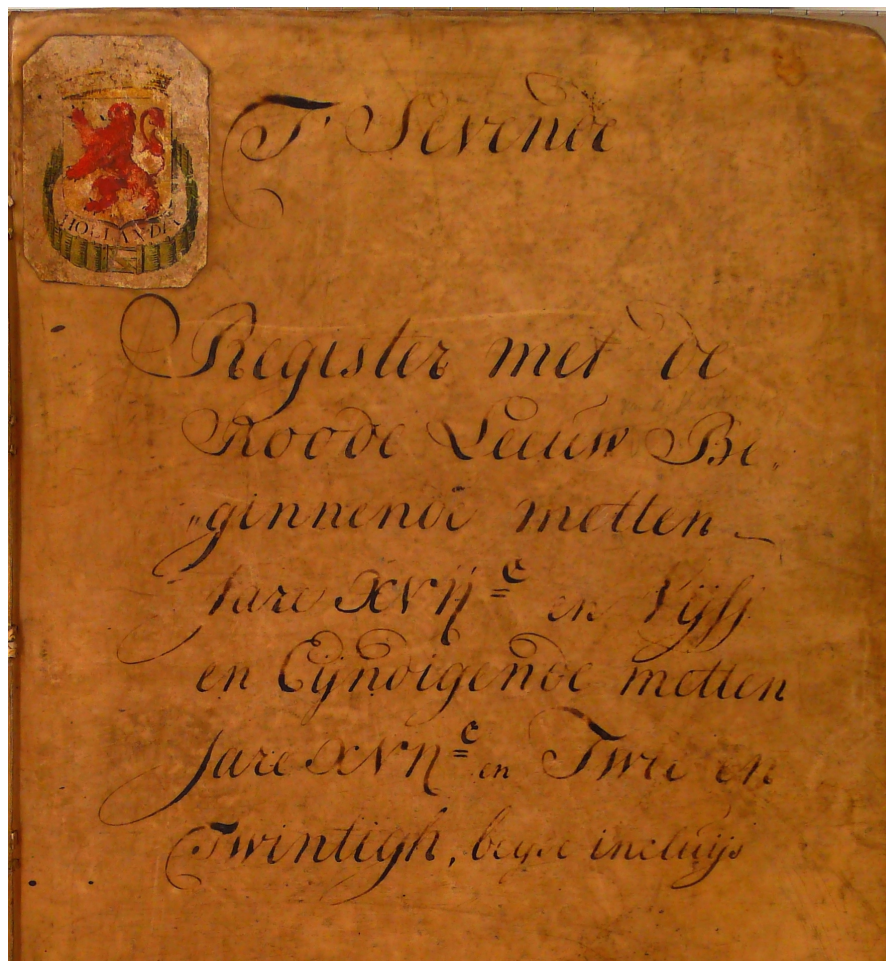 HOLLANDIA
T' Sevende
Register met de
Roode Leeuw Be„
„ginnende metten
Jare XVIJ^c en Vijff
en Eijndigende metten
Jare XVIJ^c en Twee en
Twintigh, beyde incluijs